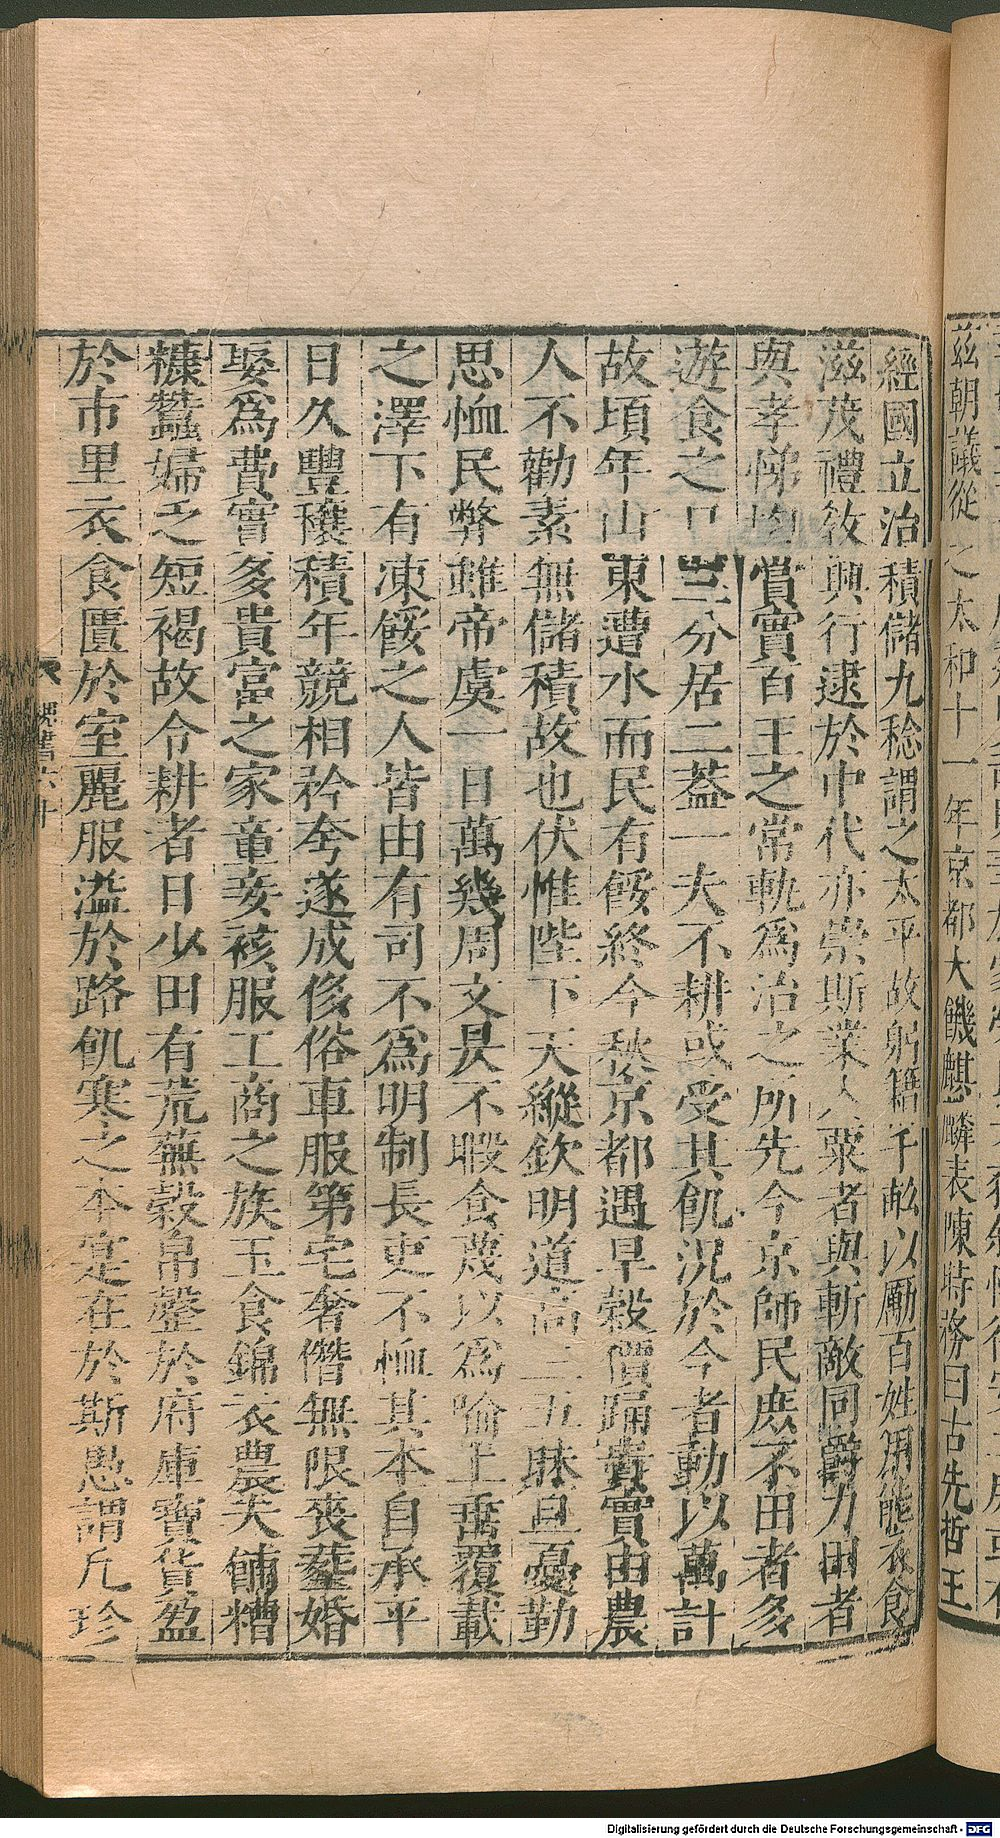 茲朝議從之太和十一年京都大饑麒麟表陳時務曰古先哲王
經國立治積儲九稔謂之太平故躬籍千畝以勵百姓用能衣食
滋茂禮敎興行逮於中代亦崇斯業入粟者與斬敵同爵力田者
與孝悌均賞實百王之常軌爲治之所先今京師民庶不田者多
遊食之口三分居二蓋一夫不耕或受其飢況於今者動以萬計
故頃年山東遭水而民有餒終今秋京都遇旱穀價踊貴實由農
人不勸素無儲積故也伏惟陛下天縱欽明道高三五昧旦憂勤
思恤民弊雖帝虞一日萬幾周文昃不暇食蔑以爲喻上垂覆載
之澤下有凍餒之人皆由有司不爲明制長吏不恤其本自承平
日久豐穰積年競相矜夸遂成侈俗車服第宅奢僭無限喪葬婚
娶爲費實多貴富之家童妾袨服工商之族玉食錦衣農夫餔糟
糠蠶婦乏短褐故令耕者日少田有荒蕪穀帛罄於府庫寶貨盈
於市里衣食匱於室麗服溢於路飢寒之本寔在於斯愚謂凡珍
魏書六十
Digitalisierung gefördert durch die Deutsche Forschungsgemeinschaft - DFG